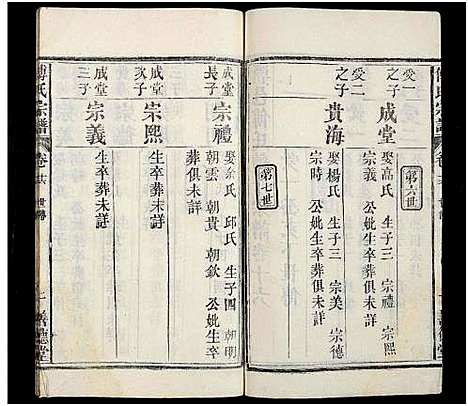 傅氏宗譜
第六世
受一之子
成堂
娶高氏 生子三 宗禮 宗熙
宗義 公妣生卒葬俱未詳
受二之子
貴海
娶楊氏 生子三 宗美 宗德
宗時 公妣生卒葬俱未詳
第七世
成堂長子
宗禮
娶余氏 邱氏 生子四 朝明
朝雲 朝貴 朝欽 公妣生卒
葬俱未詳
成堂次子
宗熙
生卒葬未詳
成堂三子
宗義
生卒葬未詳
傅氏宗譜
世傳
善德堂